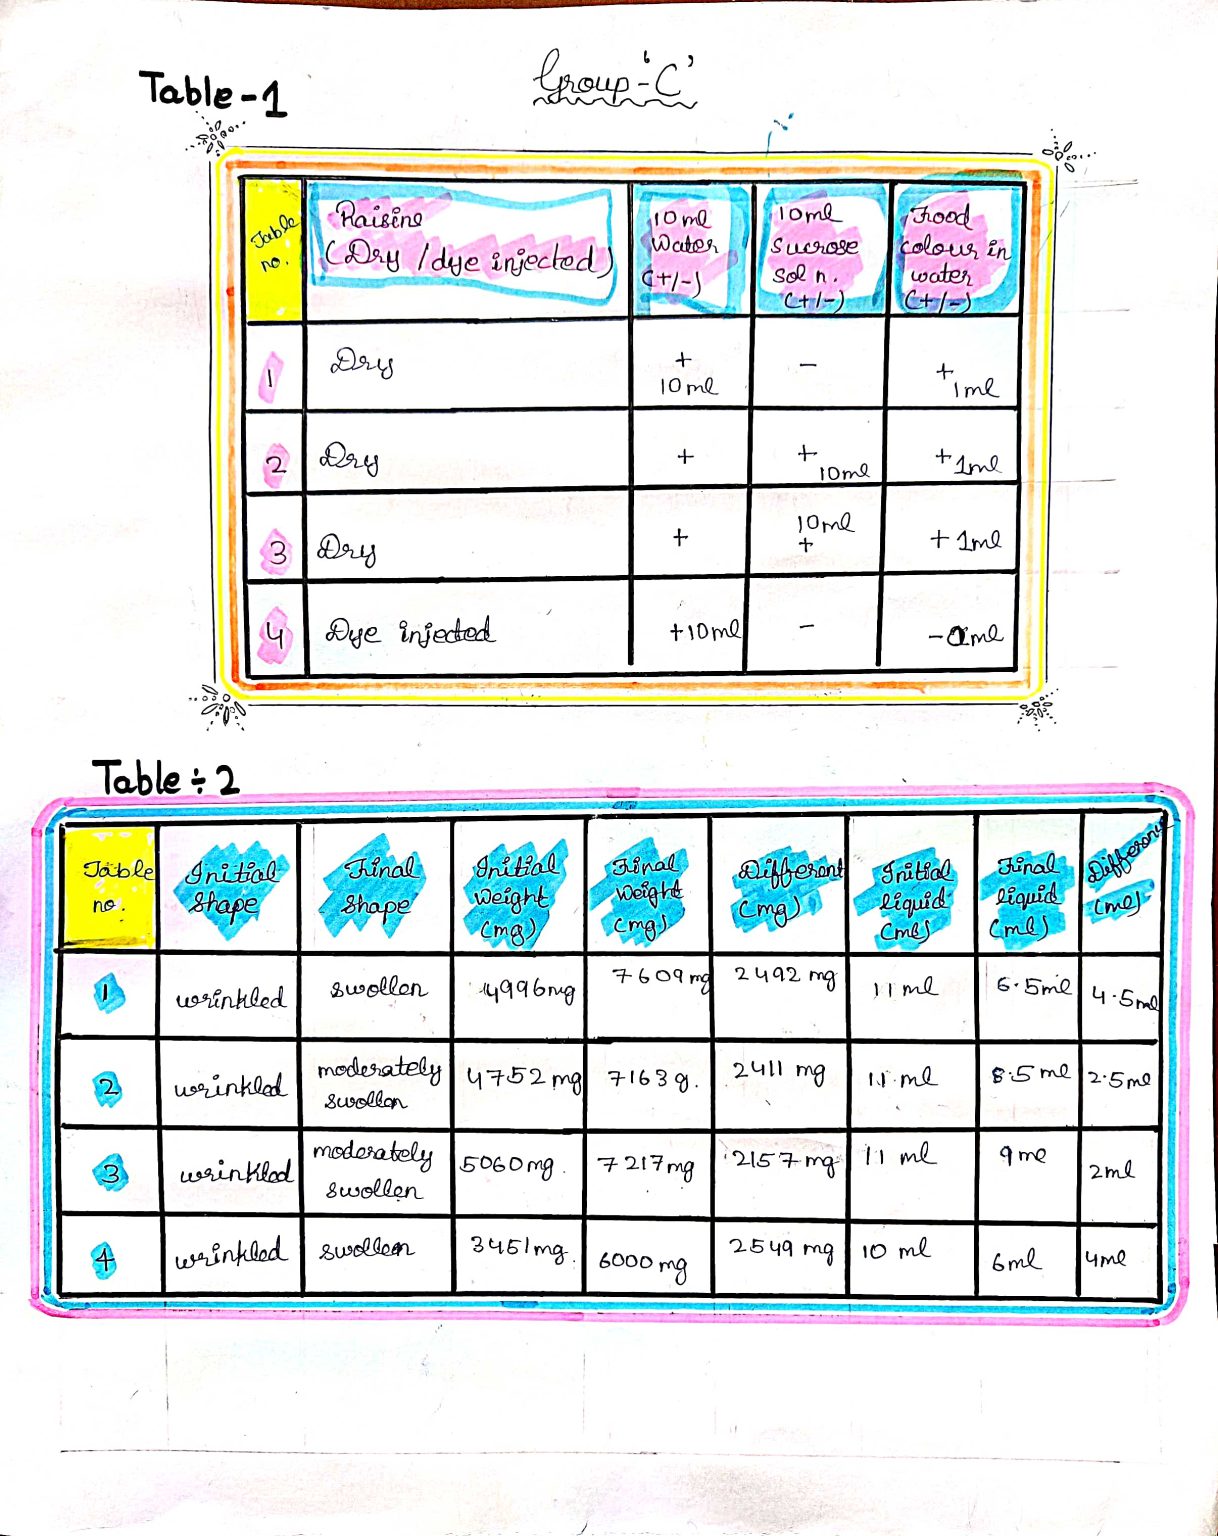 Group-'C'
Table-1
Table no. | Raisins (Dry / dye injected) | 10ml Water (+/-) | 10ml Sucrose Soln. (+/-) | Food colour in water (+/-)
1 | Dry | + 10ml | - | + 1ml
2 | Dry | + | + 10ml | + 1ml
3 | Dry | + | 10ml + | + 1ml
4 | Dye injected | +10ml | - | - ml
Table ÷ 2
Table no. | Initial Shape | Final Shape | Initial Weight (mg) | Final Weight (mg) | Different (mg) | Initial liquid (ml) | Final liquid (ml) | Difference (ml)
1 | wrinkled | swollen | 4996mg | 7609mg | 2492 mg | 11 ml | 6.5ml | 4.5ml
2 | wrinkled | moderately swollen | 4752mg | 7163g. | 2411 mg | 11 ml | 8.5ml | 2.5ml
3 | wrinkled | moderately swollen | 5060mg. | 7217mg | 2157mg | 11 ml | 9ml | 2ml
4 | wrinkled | swollen | 3451mg. | 6000mg | 2549 mg | 10 ml | 6ml | 4ml